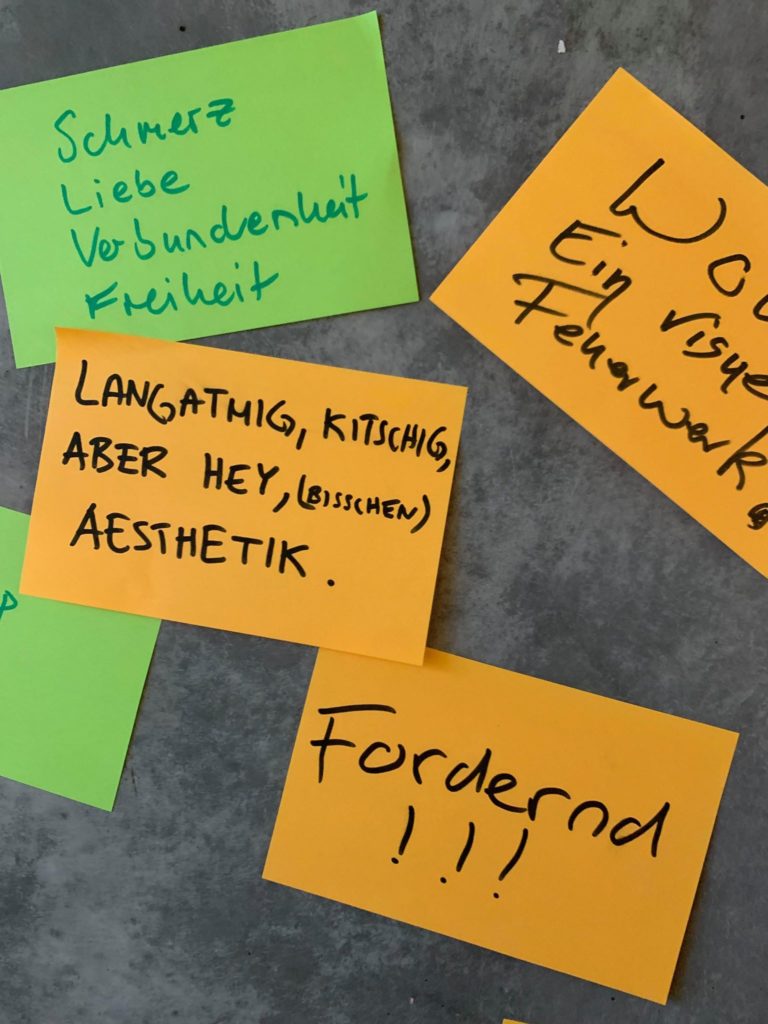 Schmerz
Liebe
Verbundenheit
Freiheit
Ein
Feuerwerk
LANGATMIG, KITSCHIG,
ABER HEY, (BISSCHEN)
AESTHETIK.
Fordernd
!!!